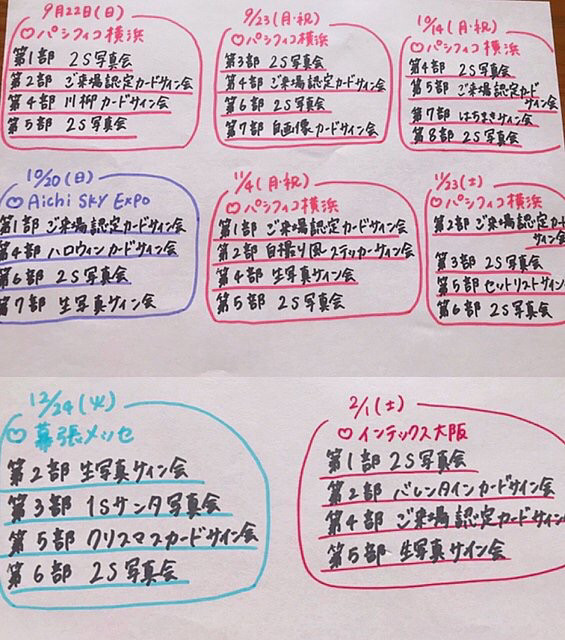 9月22日(日)
パシフィコ横浜
第1部 2S写真会
第2部 ご来場認定カードサイン会
第4部 川柳カードサイン会
第5部 2S写真会
9/23(月・祝)
パシフィコ横浜
第3部 2S写真会
第4部 ご来場認定カードサイン会
第6部 2S写真会
第7部 自画像カードサイン会
10/14(月・祝)
パシフィコ横浜
第4部 2S写真会
第5部 ご来場認定カード
サイン会
第7部 はちまきサイン会
第8部 2S写真会
10/20(日)
Aichi SKY EXPO
第1部 ご来場認定カードサイン会
第4部 ハロウィンカードサイン会
第6部 2S写真会
第7部 生写真サイン会
11/4(月・祝)
パシフィコ横浜
第1部 ご来場認定カードサイン会
第2部 自撮り風ステッカーサイン会
第4部 生写真サイン会
第5部 2S写真会
11/23(土)
パシフィコ横浜
第2部 ご来場認定カード
サイン会
第3部 2S写真会
第5部 セットリストサイン
第6部 2S写真会
12/24(火)
幕張メッセ
第2部 生写真サイン会
第3部 1Sサンタ写真会
第5部 クリスマスカードサイン会
第6部 2S写真会
2/1(土)
インテックス大阪
第1部 2S写真会
第2部 バレンタインカードサイン会
第4部 ご来場認定カードサイン
第5部 生写真サイン会